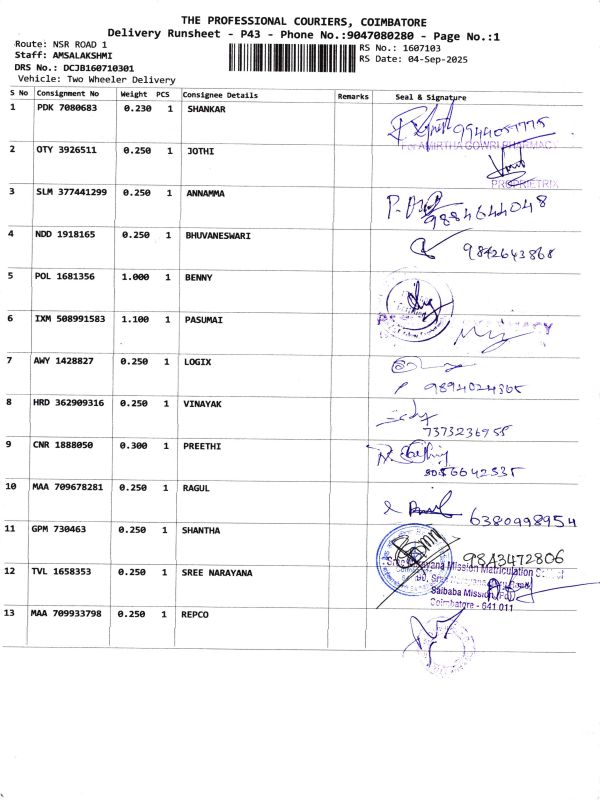 THE PROFESSIONAL COURIERS, COIMBATORE
Delivery Runsheet - P43 - Phone No.:9047080280 - Page No.:1
Route: NSR ROAD 1
RS No.: 1607103
Staff: AMSALAKSHMI
RS Date: 04-Sep-2025
DRS No.: DCJB160710301
Vehicle: Two Wheeler Delivery
S No Consignment No Weight PCS Consignee Details Remarks Seal & Signature
1 PDK 7080683 0.230 1 SHANKAR 9944057775
For AMIRTHA GOWRI PHARMACY
2 OTY 3926511 0.250 1 JOTHI
PROPRIETRIX
3 SLM 377441299 0.250 1 ANNAMMA 9884644048
4 NDD 1918165 0.250 1 BHUVANESWARI 9842643868
5 POL 1681356 1.000 1 BENNY
6 IXM 508991583 1.100 1 PASUMAI
7 AWY 1428827 0.250 1 LOGIX
9894024365
8 HRD 362909316 0.250 1 VINAYAK
7373236955
9 CNR 1888050 0.300 1 PREETHI
8056642535
10 MAA 709678281 0.250 1 RAGUL 6380998954
11 GPM 730463 0.250 1 SHANTHA 9843472806
Narayana Mission Matriculation School
12 TVL 1658353 0.250 1 SREE NARAYANA
Saibaba Mission (Po)
Coimbatore - 641 011
13 MAA 709933798 0.250 1 REPCO